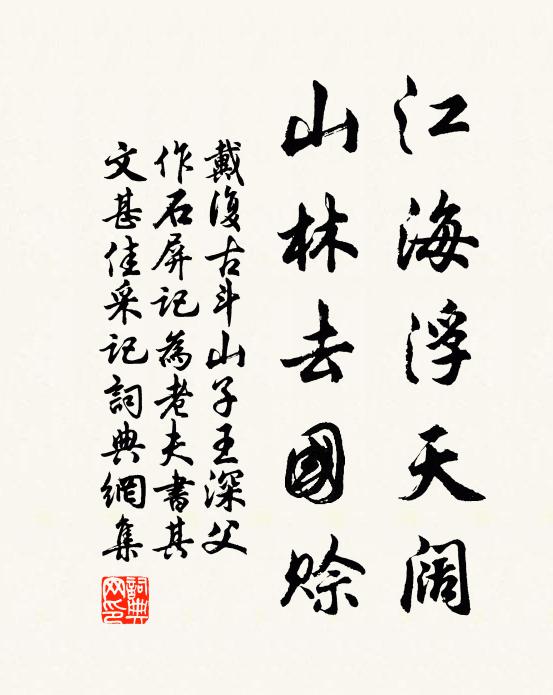 江海浮天阔
山林去國赊
戴復古斗山子王深父
作石屏記為老夫書其
文甚佳采記詞典網集
詞典網印